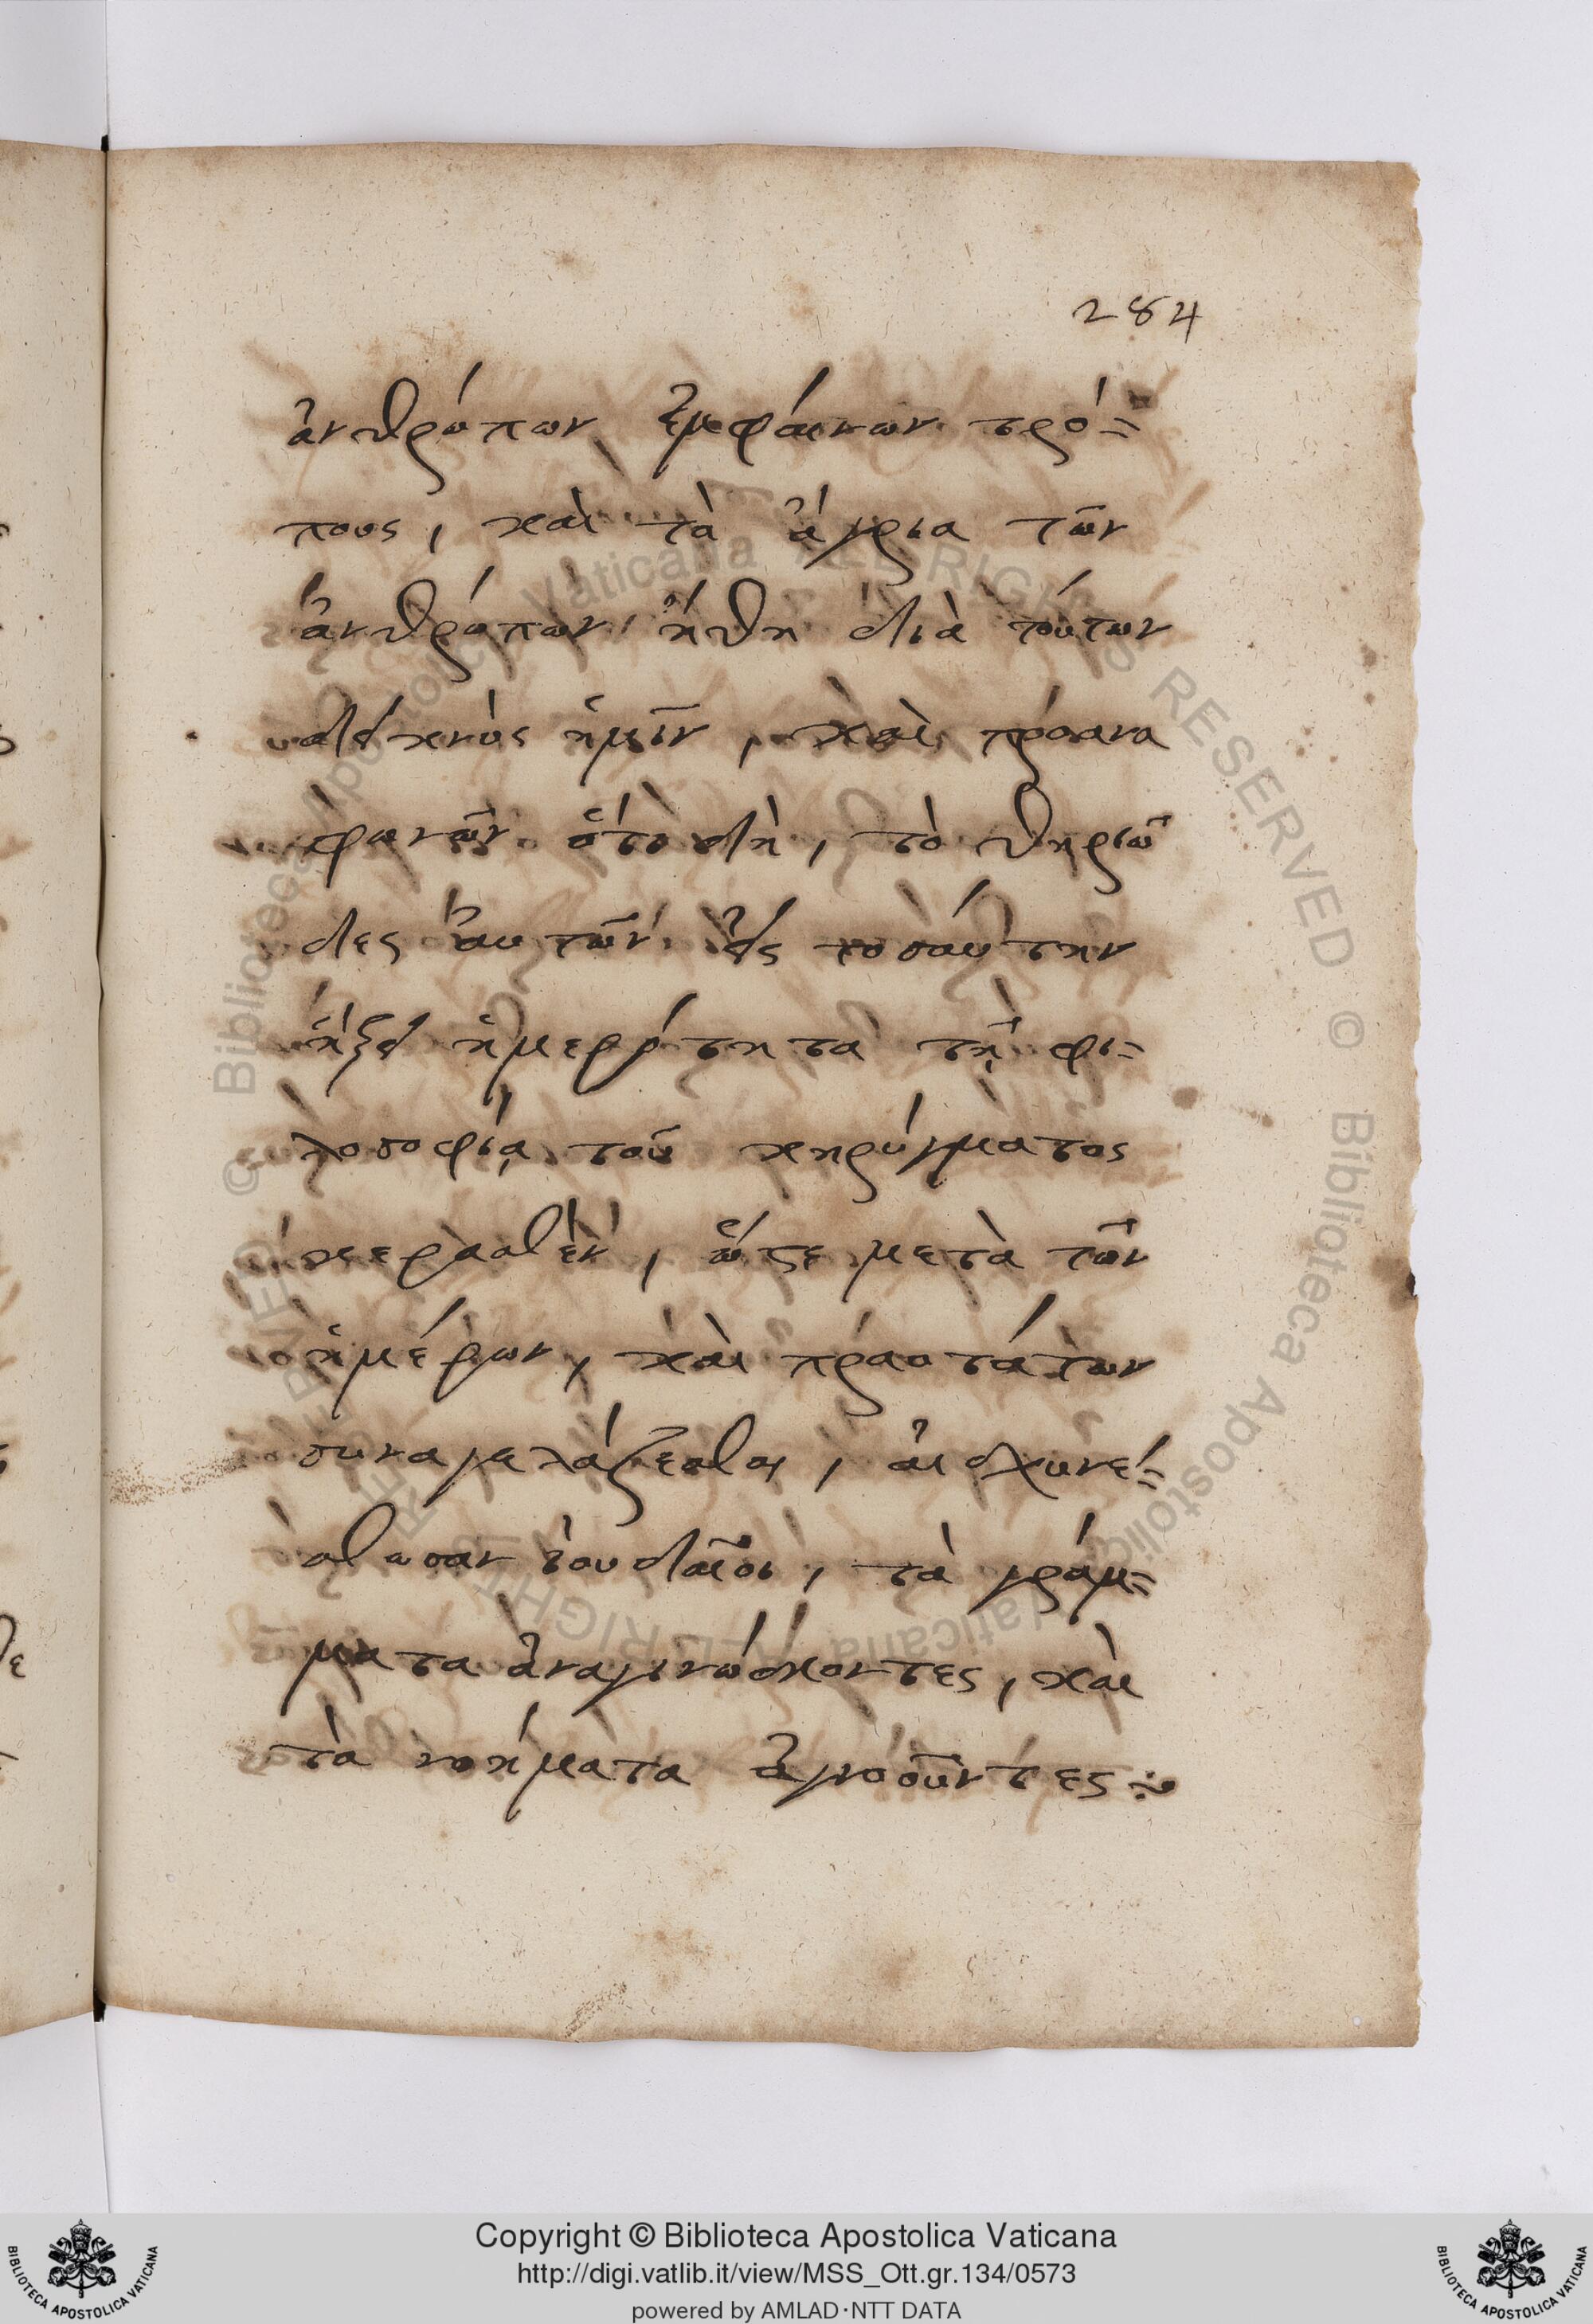 284
ἀνθρώπων ἐμφαίνων τρό=
πους, καὶ τὰ ἄγρια τῶν
ἀνθρώπων ἤθη διὰ τούτων
δεικνὺς ἡμῖν, καὶ προανα
φωνῶν ὅτι δὴ, τὸ θηριῶ
δες αὐτῶν εἰς τοσαύτην
ἥξει ἡμερότητα τῇ φι=
λοσοφίᾳ τοῦ κηρύγματος
κερασθὲν, ὥστε μετὰ τῶν
ἡμέρων, καὶ πραοτάτων
συναγελάζεσθαι, αἰσχυνέ=
σθωσαν ἰουδαῖοι, τὰ γράμ=
ματα ἀναγινώσκοντες, καὶ
τὰ νοήματα ἀγνοοῦντες
© Biblioteca Apostolica Vaticana ALL RIGHTS RESERVED © Biblioteca Apostolica Vaticana ALL RIGHTS RESERVED
Copyright © Biblioteca Apostolica Vaticana
http://digi.vatlib.it/view/MSS_Ott.gr.134/0573
powered by AMLAD·NTT DATA
BIBLIOTECA APOSTOLICA VATICANA
BIBLIOTECA APOSTOLICA VATICANA